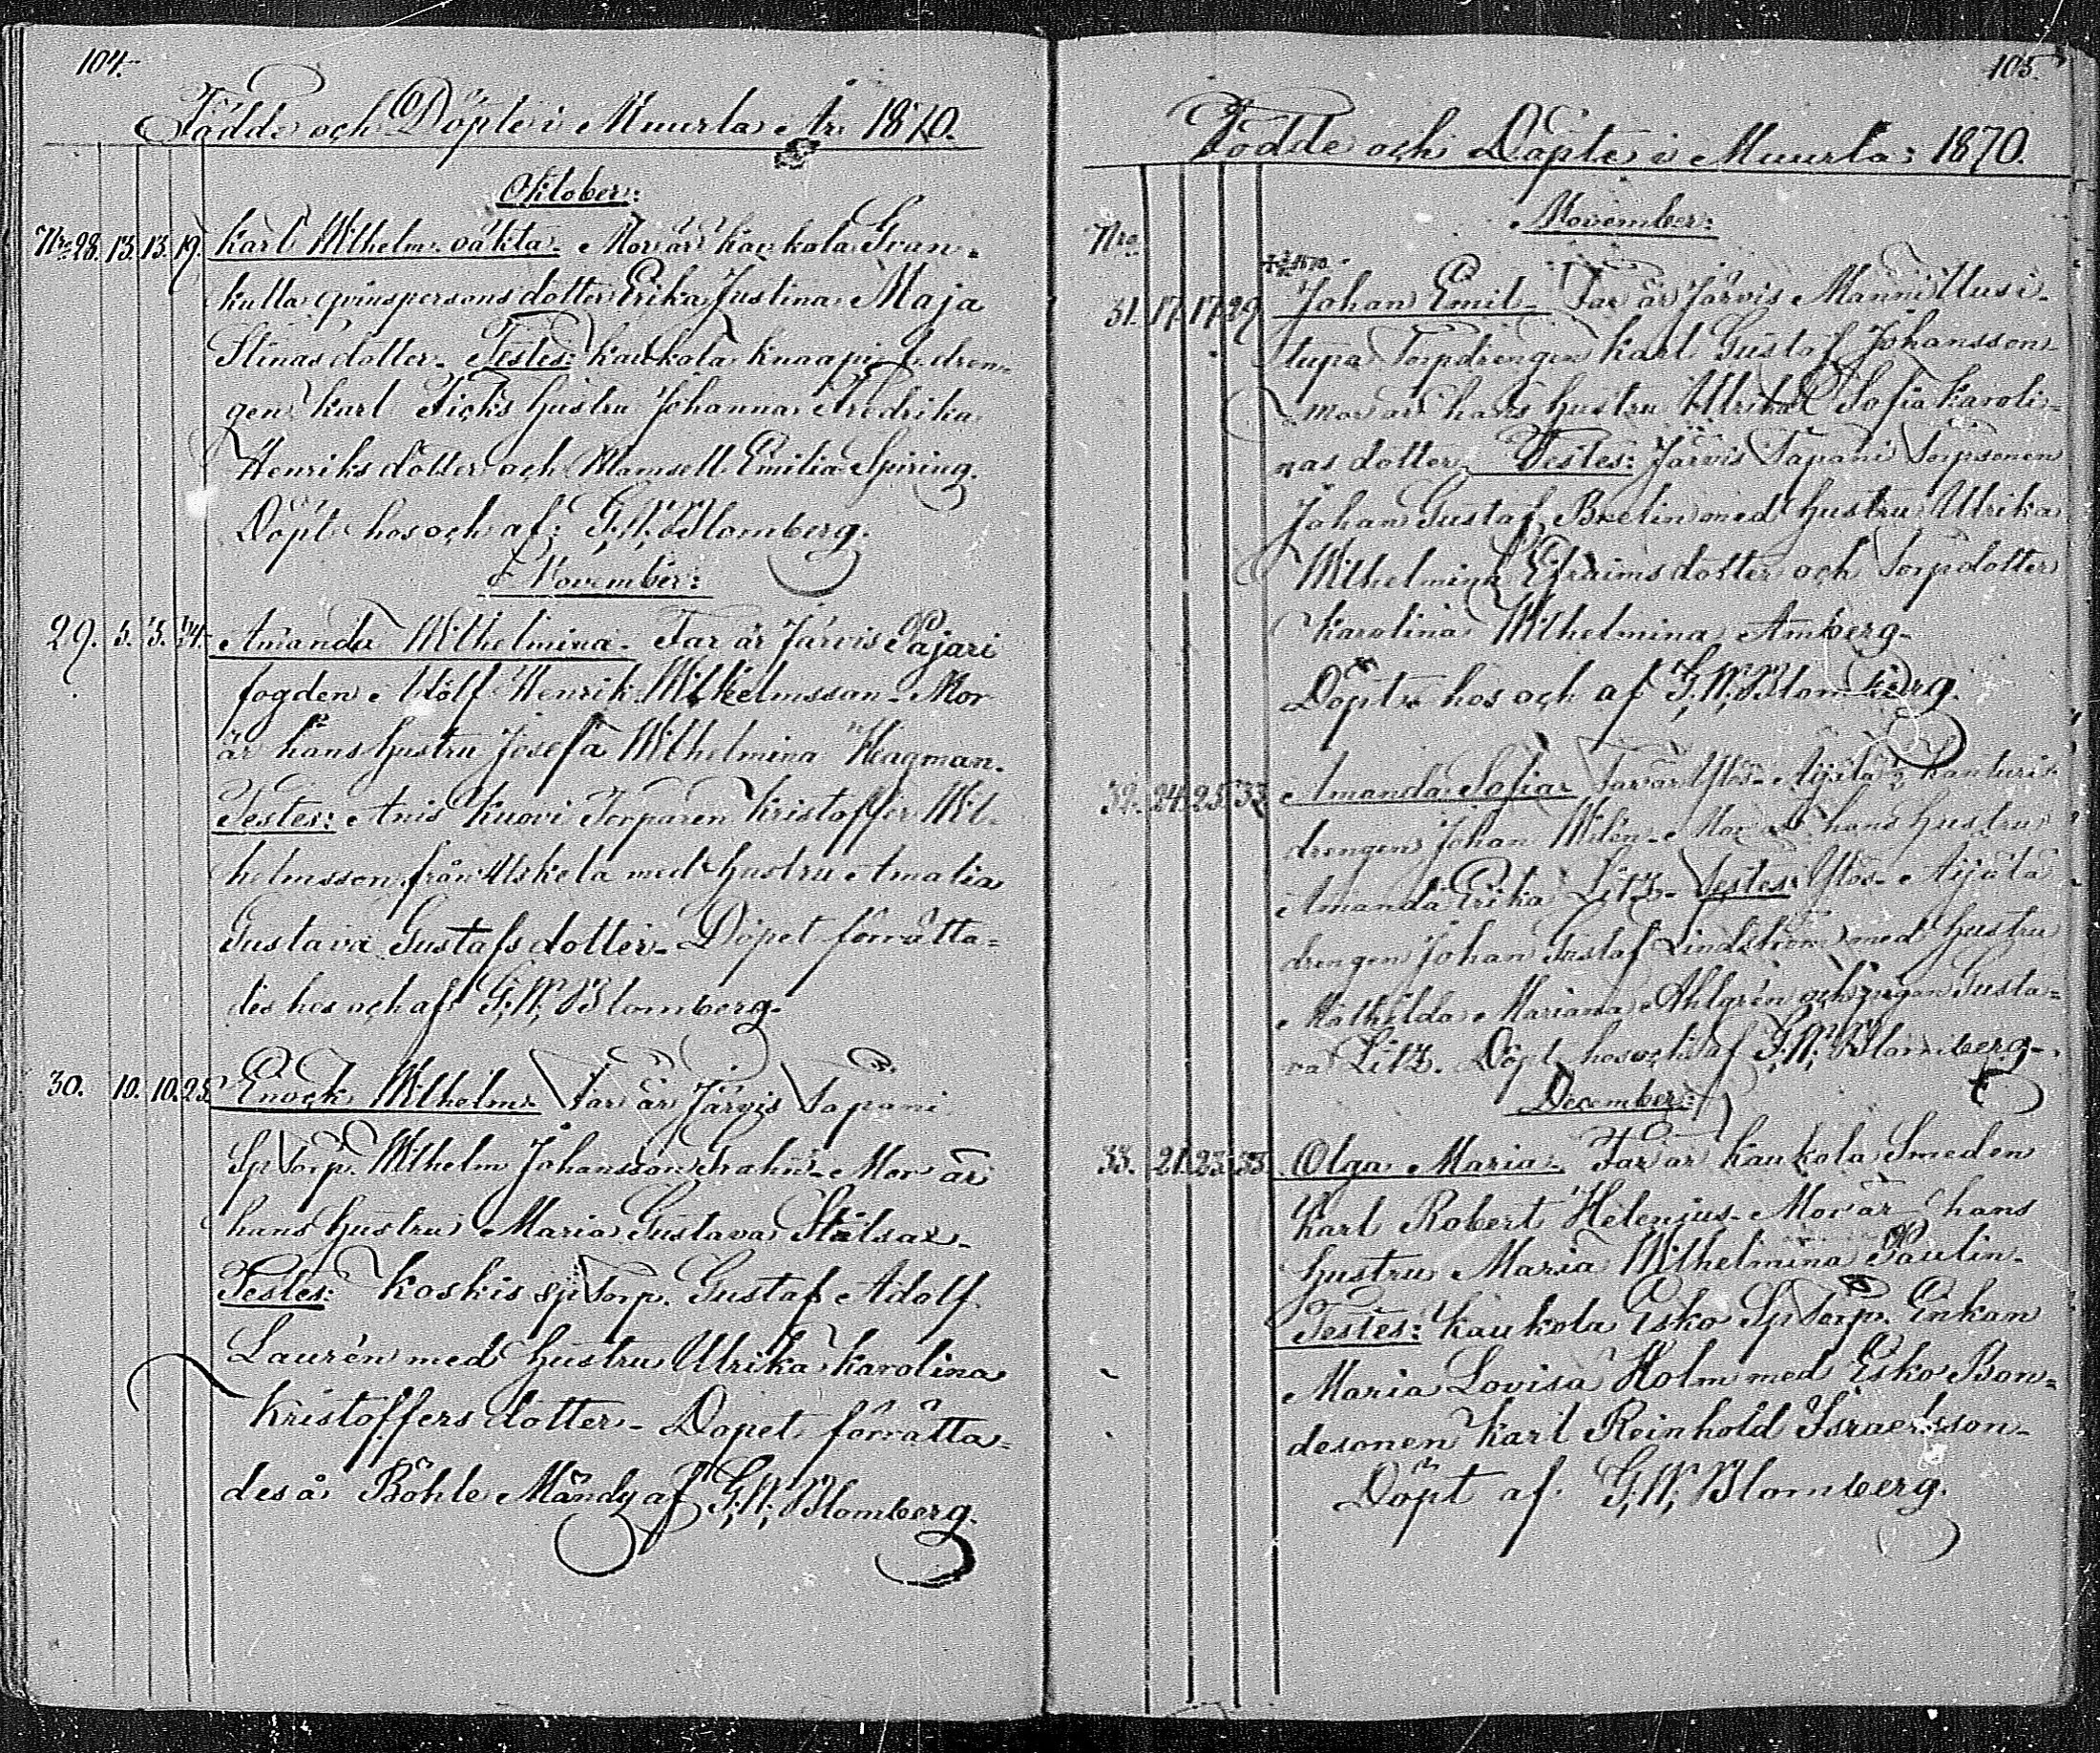 104.
Födde och Döpte i Muurla År 1870.
Oktober:
Nro 28. 13. 13. 19. Karl Wilhelm oäkta. Mor är Kaukola Gran-
kulla qvinspersons dotter Erika Justina Maja
Stinasdotter. Testes: Kaukola Knaapi t. dren-
gen Karl Ficks hustru Johanna Fredrika
Henriksdotter och Mamsell Emilia Spiring.
Döpt hos och af: G. W. Blomberg.
November:
29. 5. 5. 24. Amanda Wilhelmina. Far är Järvis Pajari
fogden Adolf Henrik Wilhelmsson. Mor
är hans hustru Josefa Wilhelmina Hagman.
Testes: Anis Kuovi Torparen Kristoffer Wil-
helmsson från Uskela med hustru Amalia
Gustava Gustafsdotter. Döpet förrätta-
des hos och af G. W. Blomberg.
30. 10. 10. 25. Enock Wilhelm. Far är Järvis Tapani
Sp Torp. Wilhelm Johansson Grahn. Mor är
hans hustru Maria Gustava
Testes: Koskis sp Torp. Gustaf Adolf
Laurén med hustru Ulrika Karolina
Kristoffersdotter. Döpet förrätta-
des å Böhle af G. W. Blomberg.
105.
Födde och Döpte i Muurla: 1870.
November:
Nro
31. 17. 17. 29. Johan Emil. Far är Järvis Männi Uusi-
tupa Torpdrengen Karl Gustaf Johansson
mor är hans hustru Ulrika Sofia Karoli-
nas dotter. Testes: Järvis Tapani Torpsonen
Johan Gustaf Brelin med hustru Ulrika
Wilhelmina Efraimsdotter och Torpdotter
Karolina Wilhelmina Amberg.
Döpt hos och af G. W. Blomberg.
32. 24. 25. 33. Amanda Sofia. Far är Ylös-Äijälä
drengen Johan Milén. Mor är hans hustru
Amanda Erika Litz. Testes: Ylös-Äijälä
drengen Johan Gustaf Lindström med hustru
Mathilda Mariana Ahlgrén och pigan Gusta-
va Litz. Döpt hos och af G. W. Blomberg.
December:
33. 21. 23. 33. Olga Maria. Far är Kaukola Smeden
Karl Robert Helenius. Mor är hans
hustru Maria Wilhelmina Paulin.
Testes: Kaukola Esko Sp Torp. Enkan
Maria Lovisa Holm med Esko Bon-
desonen Karl Reinhold Israelsson.
Döpt af. G. W. Blomberg.